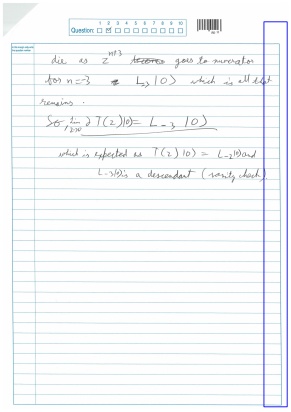 1 2 3 4 5 6 7 8 9 10
Question:
die as z^{n+3} goes to numerator
for n=-3 L_{-3} |0⟩ which is all that
remains.
So, lim_{z→0} ∂T(z)|0⟩ = L_{-3} |0⟩
which is expected as T(z)|0⟩ = L_{-2}|0⟩ and
L_{-3}|0⟩ is a descendant (sanity check).